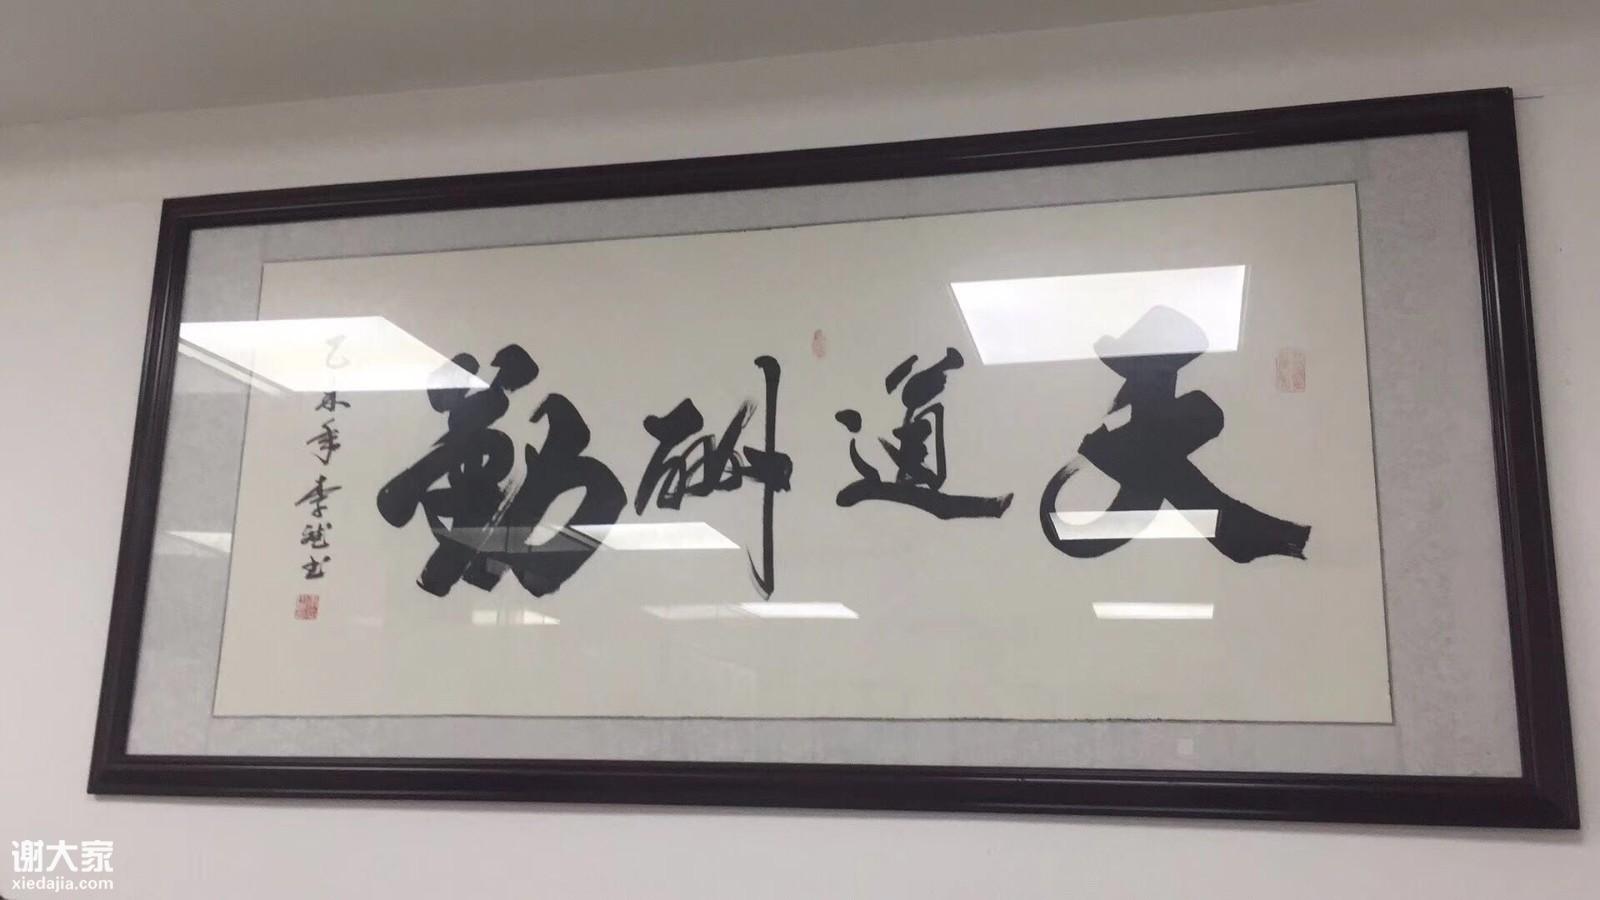 天道酬勤
乙未年李龍书
谢大家
xiedajia.com